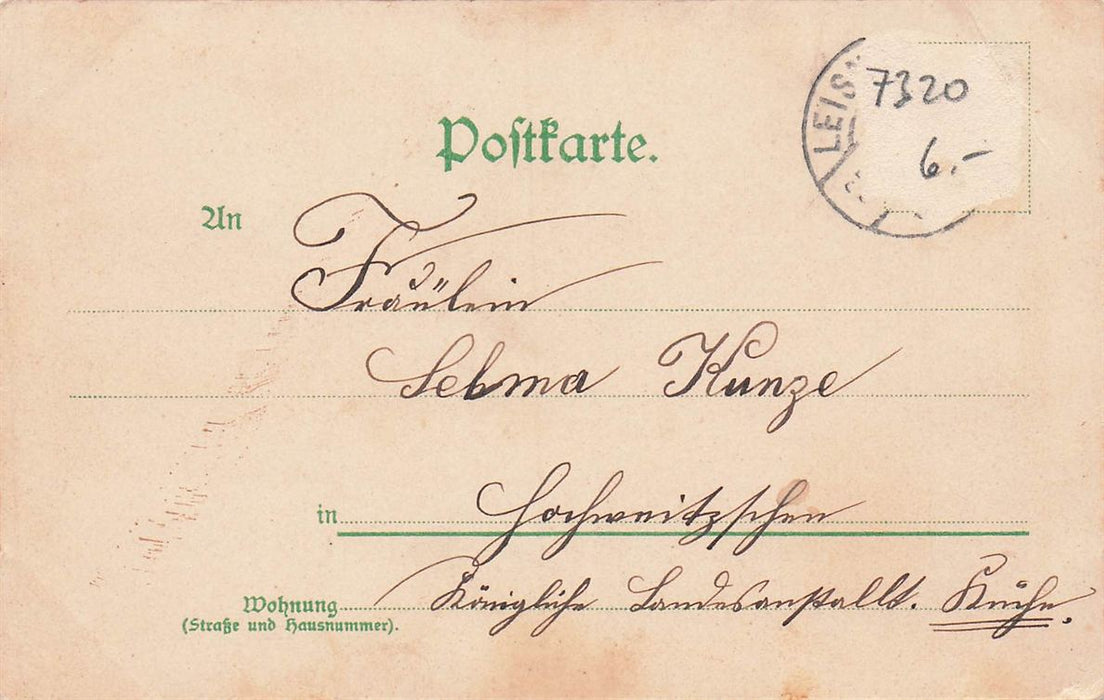 LEIS
7320
6.-
Postkarte.
An
Fräulein
Selma Kunze
in Hochweitzschen
Wohnung Königliche Landesanstallt. Küche.
(Straße und Hausnummer).